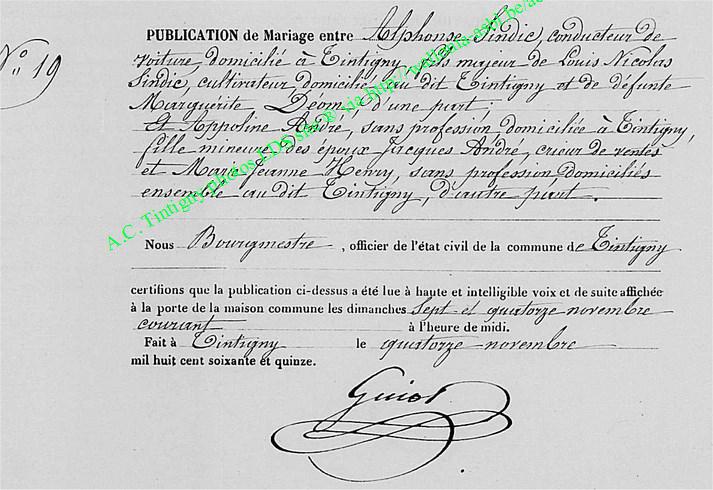 N° 19
PUBLICATION de Mariage entre Alphonse Sindic, conducteur de
voiture, domicilié à Tintigny, fils majeur de Louis Nicolas
Sindic, cultivateur, domicilié au dit Tintigny et de défunte
Marguerite Déom, d'une part;
et Appoline André, sans profession, domiciliée à Tintigny,
fille mineure des époux Jacques André, crieur de ventes
et Marie Jeanne Henry, sans profession, domiciliés
ensemble au dit Tintigny, d'autre part.
Nous Bourgmestre, officier de l'état civil de la commune de Tintigny
certifions que la publication ci-dessus a été lue à haute et intelligible voix et de suite affichée
à la porte de la maison commune les dimanches sept et quatorze novembre
courant à l'heure de midi.
Fait à Tintigny le quatorze novembre
mil huit cent soixante et quinze.
A.C. Tintigny photos LDA